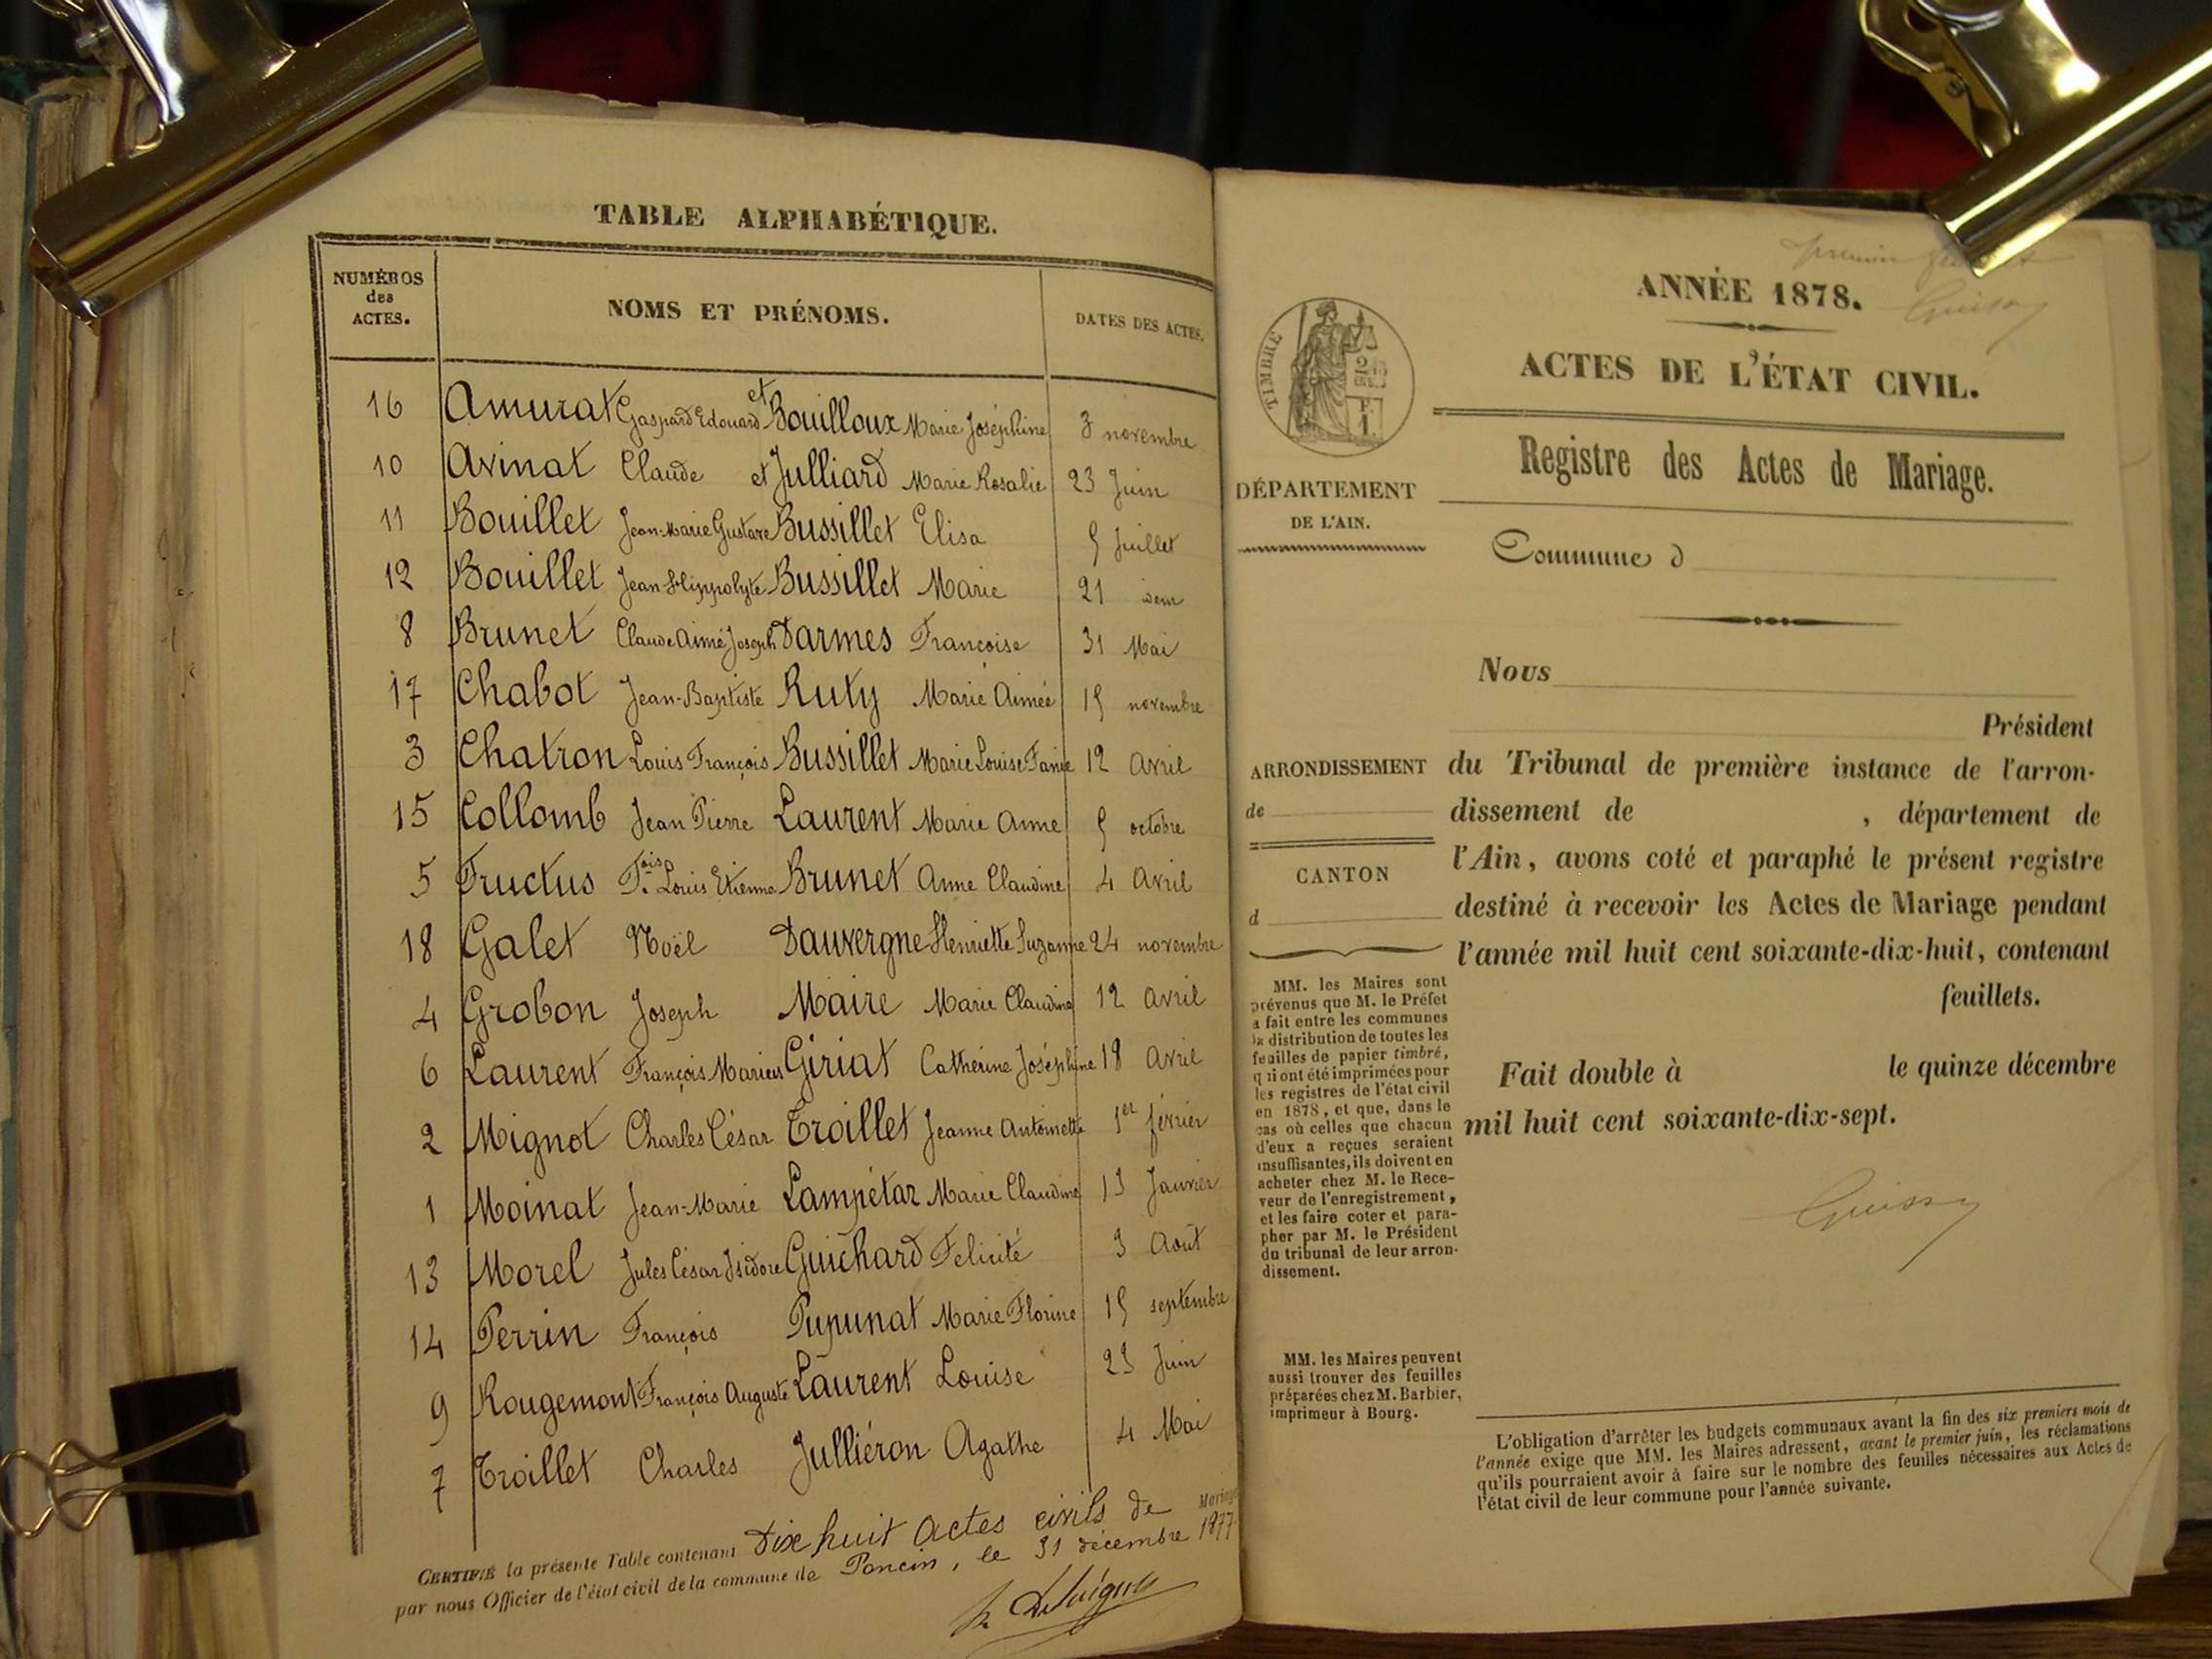 TABLE ALPHABÉTIQUE.
NUMÉROS des ACTES. NOMS ET PRÉNOMS. DATES DES ACTES.
16 Amurat Gaspard Edouard et Bouilloux Marie Joséphine 3 novembre
10 Avinat Claude et Julliard Marie Rosalie 23 Juin
11 Bouillet Jean-Marie Gustave Bussillet Elisa 5 Juillet
12 Bouillet Jean Hippolyte Bussillet Marie 21 idem
8 Brunet Claude Aimé Joseph Darmes Françoise 31 Mai
17 Chabot Jean-Baptiste Ruty Marie Aimée 15 novembre
3 Chatron Louis François Bussillet Marie Louise Fanie 12 Avril
15 Collomb Jean Pierre Laurent Marie Anne 5 octobre
5 Fructus Fois Louis Etienne Brunet Anne Claudine 4 Avril
18 Galet Noël Dauvergne Henriette Suzanne 24 novembre
4 Grobon Joseph Maire Marie Claudine 12 Avril
6 Laurent François Marius Giriat Catherine Joséphine 18 Avril
2 Mignot Charles César Troillet Jeanne Antoinette 1er février
1 Moinat Jean-Marie Lampétaz Marie Claudine 13 Janvier
13 Morel Jules César Isidore Guichard Felicité 3 Août
14 Perrin François Pupunat Marie Florine 15 septembre
9 Rougemont François Auguste Laurent Louise 23 Juin
7 Troillet Charles Julliéron Agathe 4 Mai
CERTIFIÉ la présente Table contenant Dix huit actes civils de Mariage
par nous Officier de l'état civil de la commune de Poncin, le 31 décembre 1877
ANNÉE 1878.
ACTES DE L'ÉTAT CIVIL.
Registre des Actes de Mariage.
TIMBRE
DÉPARTEMENT
DE L'AIN.
Commune d
Nous
Président
ARRONDISSEMENT
de
CANTON
d
du Tribunal de première instance de l'arron-
dissement de , département de
l'Ain, avons coté et paraphé le présent registre
destiné à recevoir les Actes de Mariage pendant
l'année mil huit cent soixante-dix-huit, contenant
feuillets.
Fait double à le quinze décembre
mil huit cent soixante-dix-sept.
MM. les Maires sont
prévenus que M. le Préfet
a fait entre les communes
la distribution de toutes les
feuilles de papier timbré,
qui ont été imprimées pour
les registres de l'état civil
en 1878, et que, dans le
cas où celles que chacun
d'eux a reçues seraient
insuffisantes, ils doivent en
acheter chez M. le Rece-
veur de l'enregistrement,
et les faire coter et para-
pher par M. le Président
du tribunal de leur arron-
dissement.
MM. les Maires peuvent
aussi trouver des feuilles
préparées chez M. Barbier,
imprimeur à Bourg.
L'obligation d'arrêter les budgets communaux avant la fin des six premiers mois de
l'année exige que MM. les Maires adressent, avant le premier juin, les réclamations
qu'ils pourraient avoir à faire sur le nombre des feuilles nécessaires aux Actes de
l'état civil de leur commune pour l'année suivante.